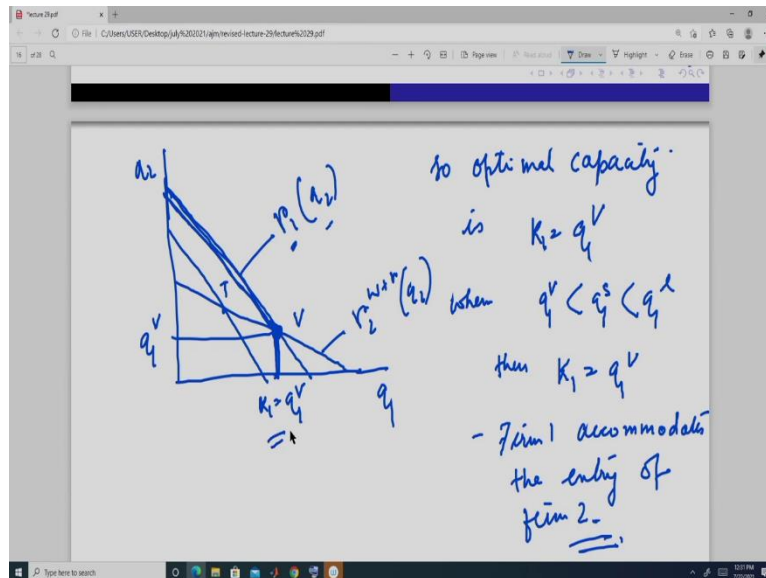 lecture 29.pdf
File | C:/Users/USER/Desktop/july%202021/ajm/revised-lecture-29/lecture%2029.pdf
16 of 28
Page view
Read aloud
Draw
Highlight
Erase
q2
r1^0(q2)
T
V
r2^{w+r}(q1)
q1^V
K1 = q1^V
q1
so optimal capacity
is K1 = q1^V
when q1^V < q1^s < q1^l
then K1 = q1^V
- Firm 1 accommodates
the entry of
firm 2.
Type here to search
12:31 PM